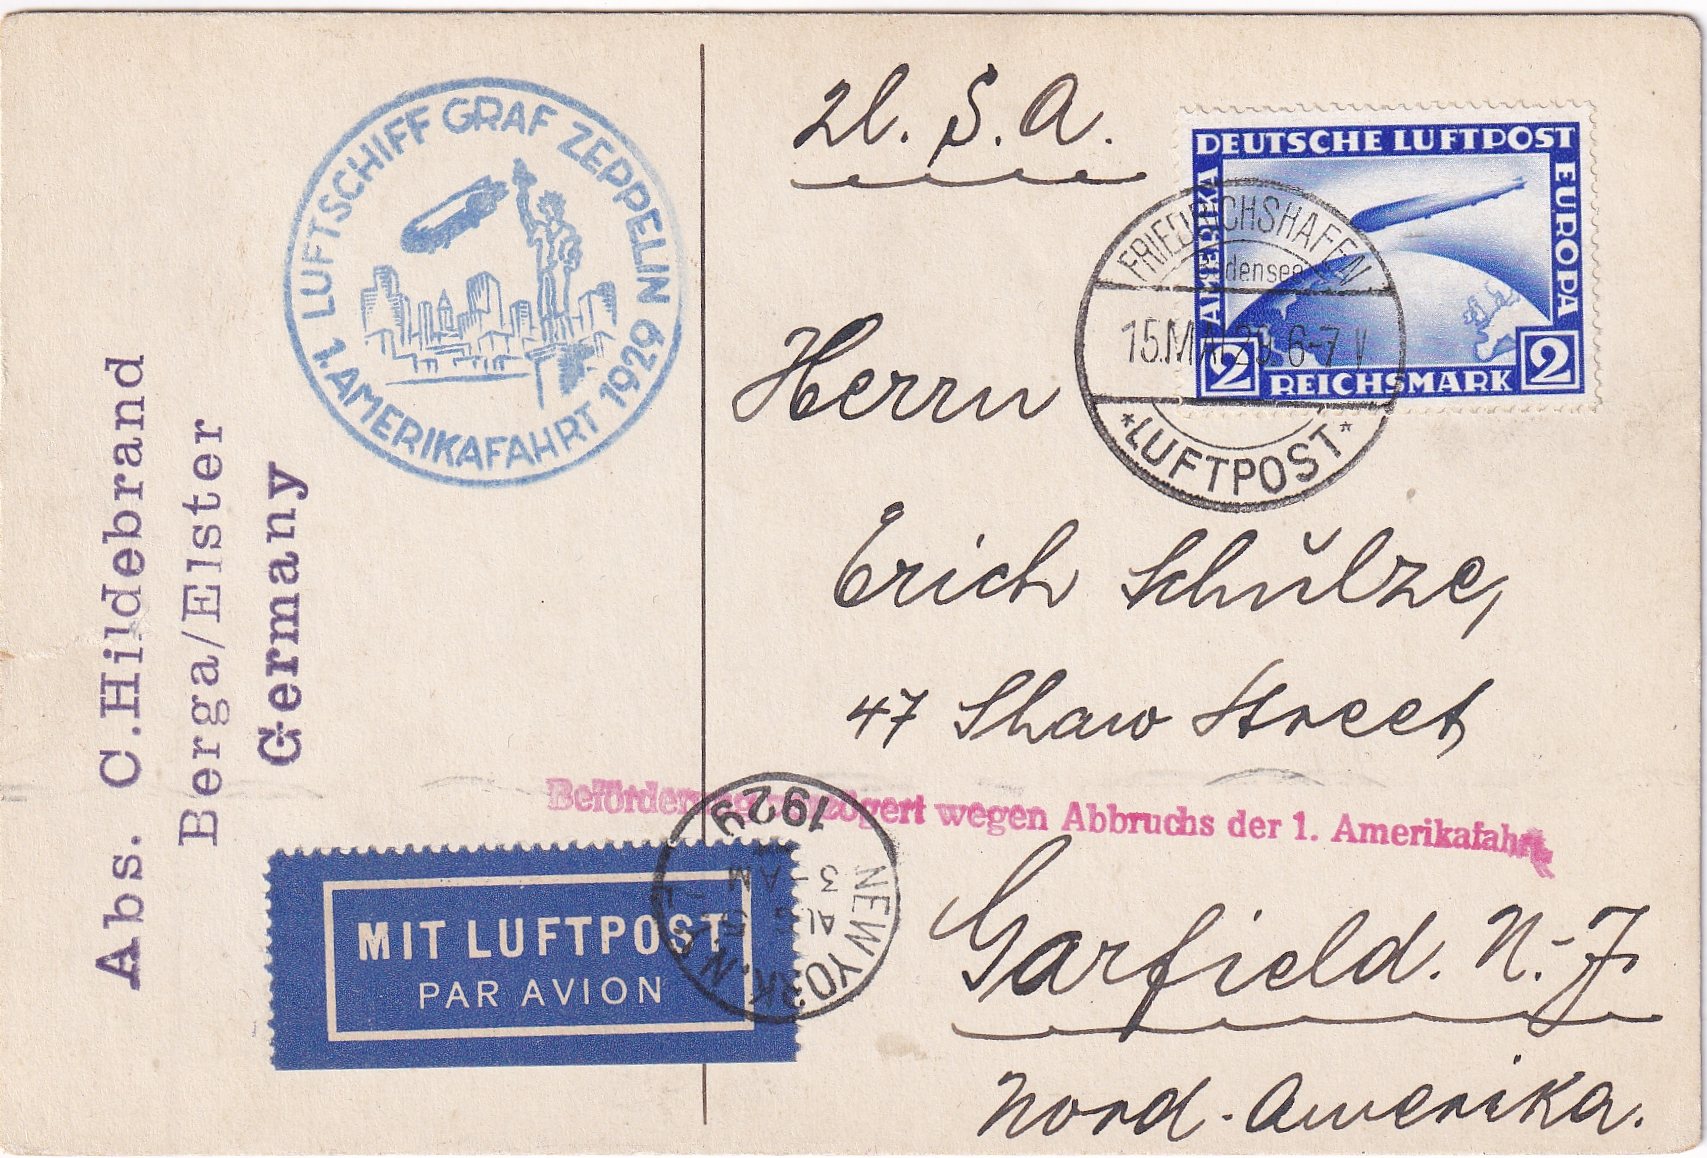 LUFTSCHIFF GRAF ZEPPELIN
1. AMERIKAFAHRT 1929
U. S. A.
DEUTSCHE LUFTPOST
AMERIKA
EUROPA
2 REICHSMARK 2
FRIEDRICHSHAFEN
Bodensee
15.MAI.29. 6-7 V
*LUFTPOST*
Abs. C.Hildebrand
Berga/Elster
Germany
Herrn
Erich Schŭlze,
47 Shaw Street
Beförderung verzögert wegen Abbruchs der 1. Amerikafahrt
Garfield. N.-J.
Nord-Amerika.
MIT LUFTPOST
PAR AVION
NEW YORK, N.Y.
AUG 5
3-AM
1929